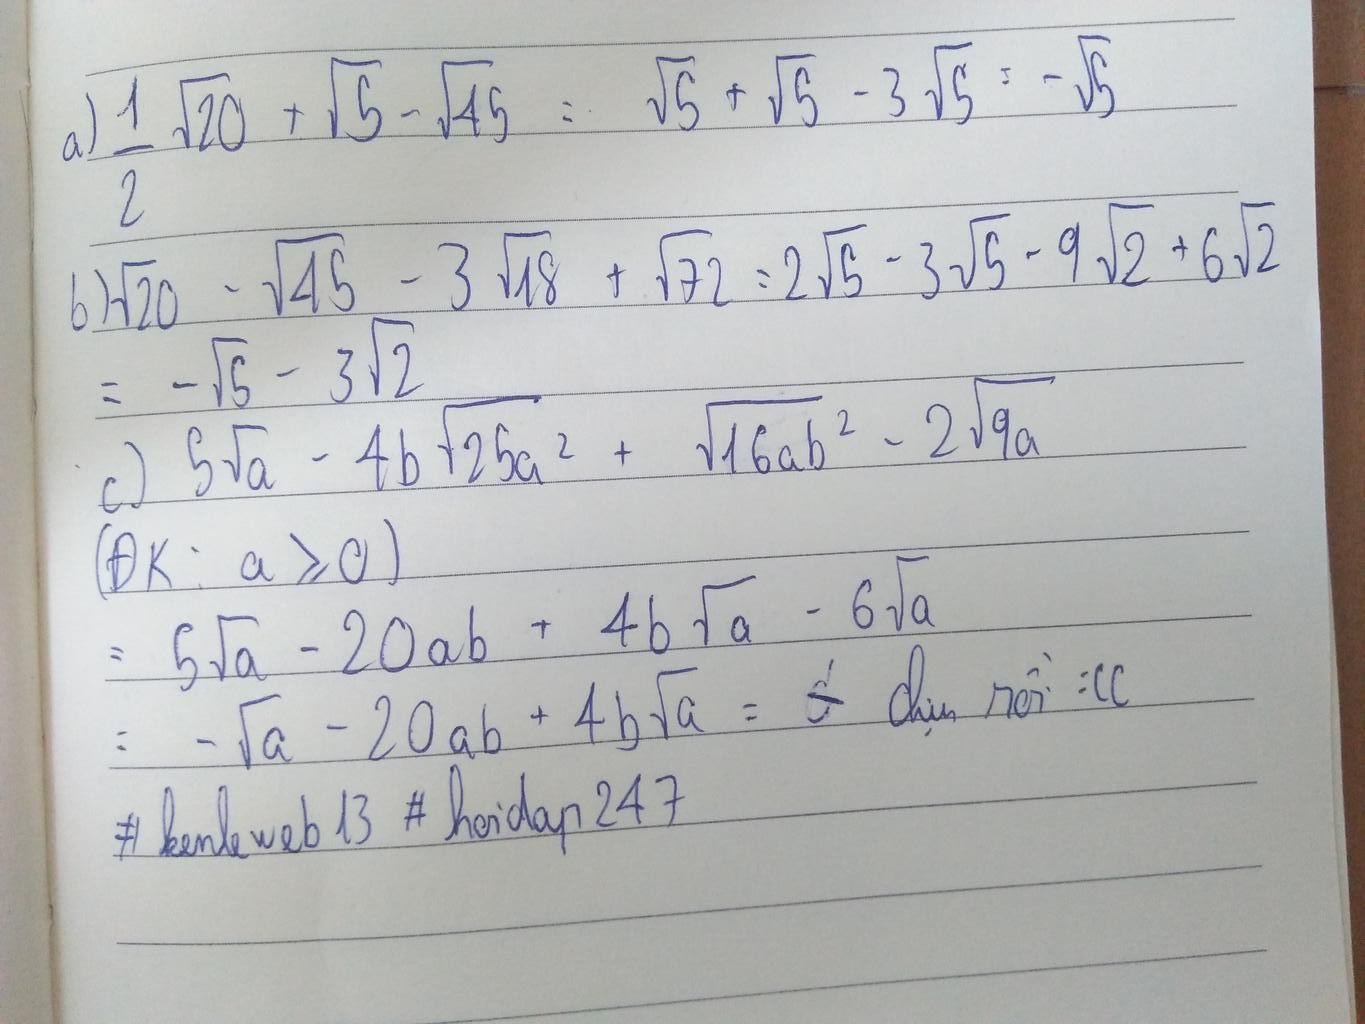 a) 1/2 √20 + √5 - √45 = √5 + √5 - 3√5 = -√5
b) √20 - √45 - 3√18 + √72 = 2√5 - 3√5 - 9√2 + 6√2
= -√5 - 3√2
c) 5√a - 4b√25a² + √16ab² - 2√9a
(ĐK: a ⩾ 0)
= 5√a - 20ab + 4b√a - 6√a
= -√a - 20ab + 4b√a = chịu rồi :((
# kenleweb13 # hoidap247